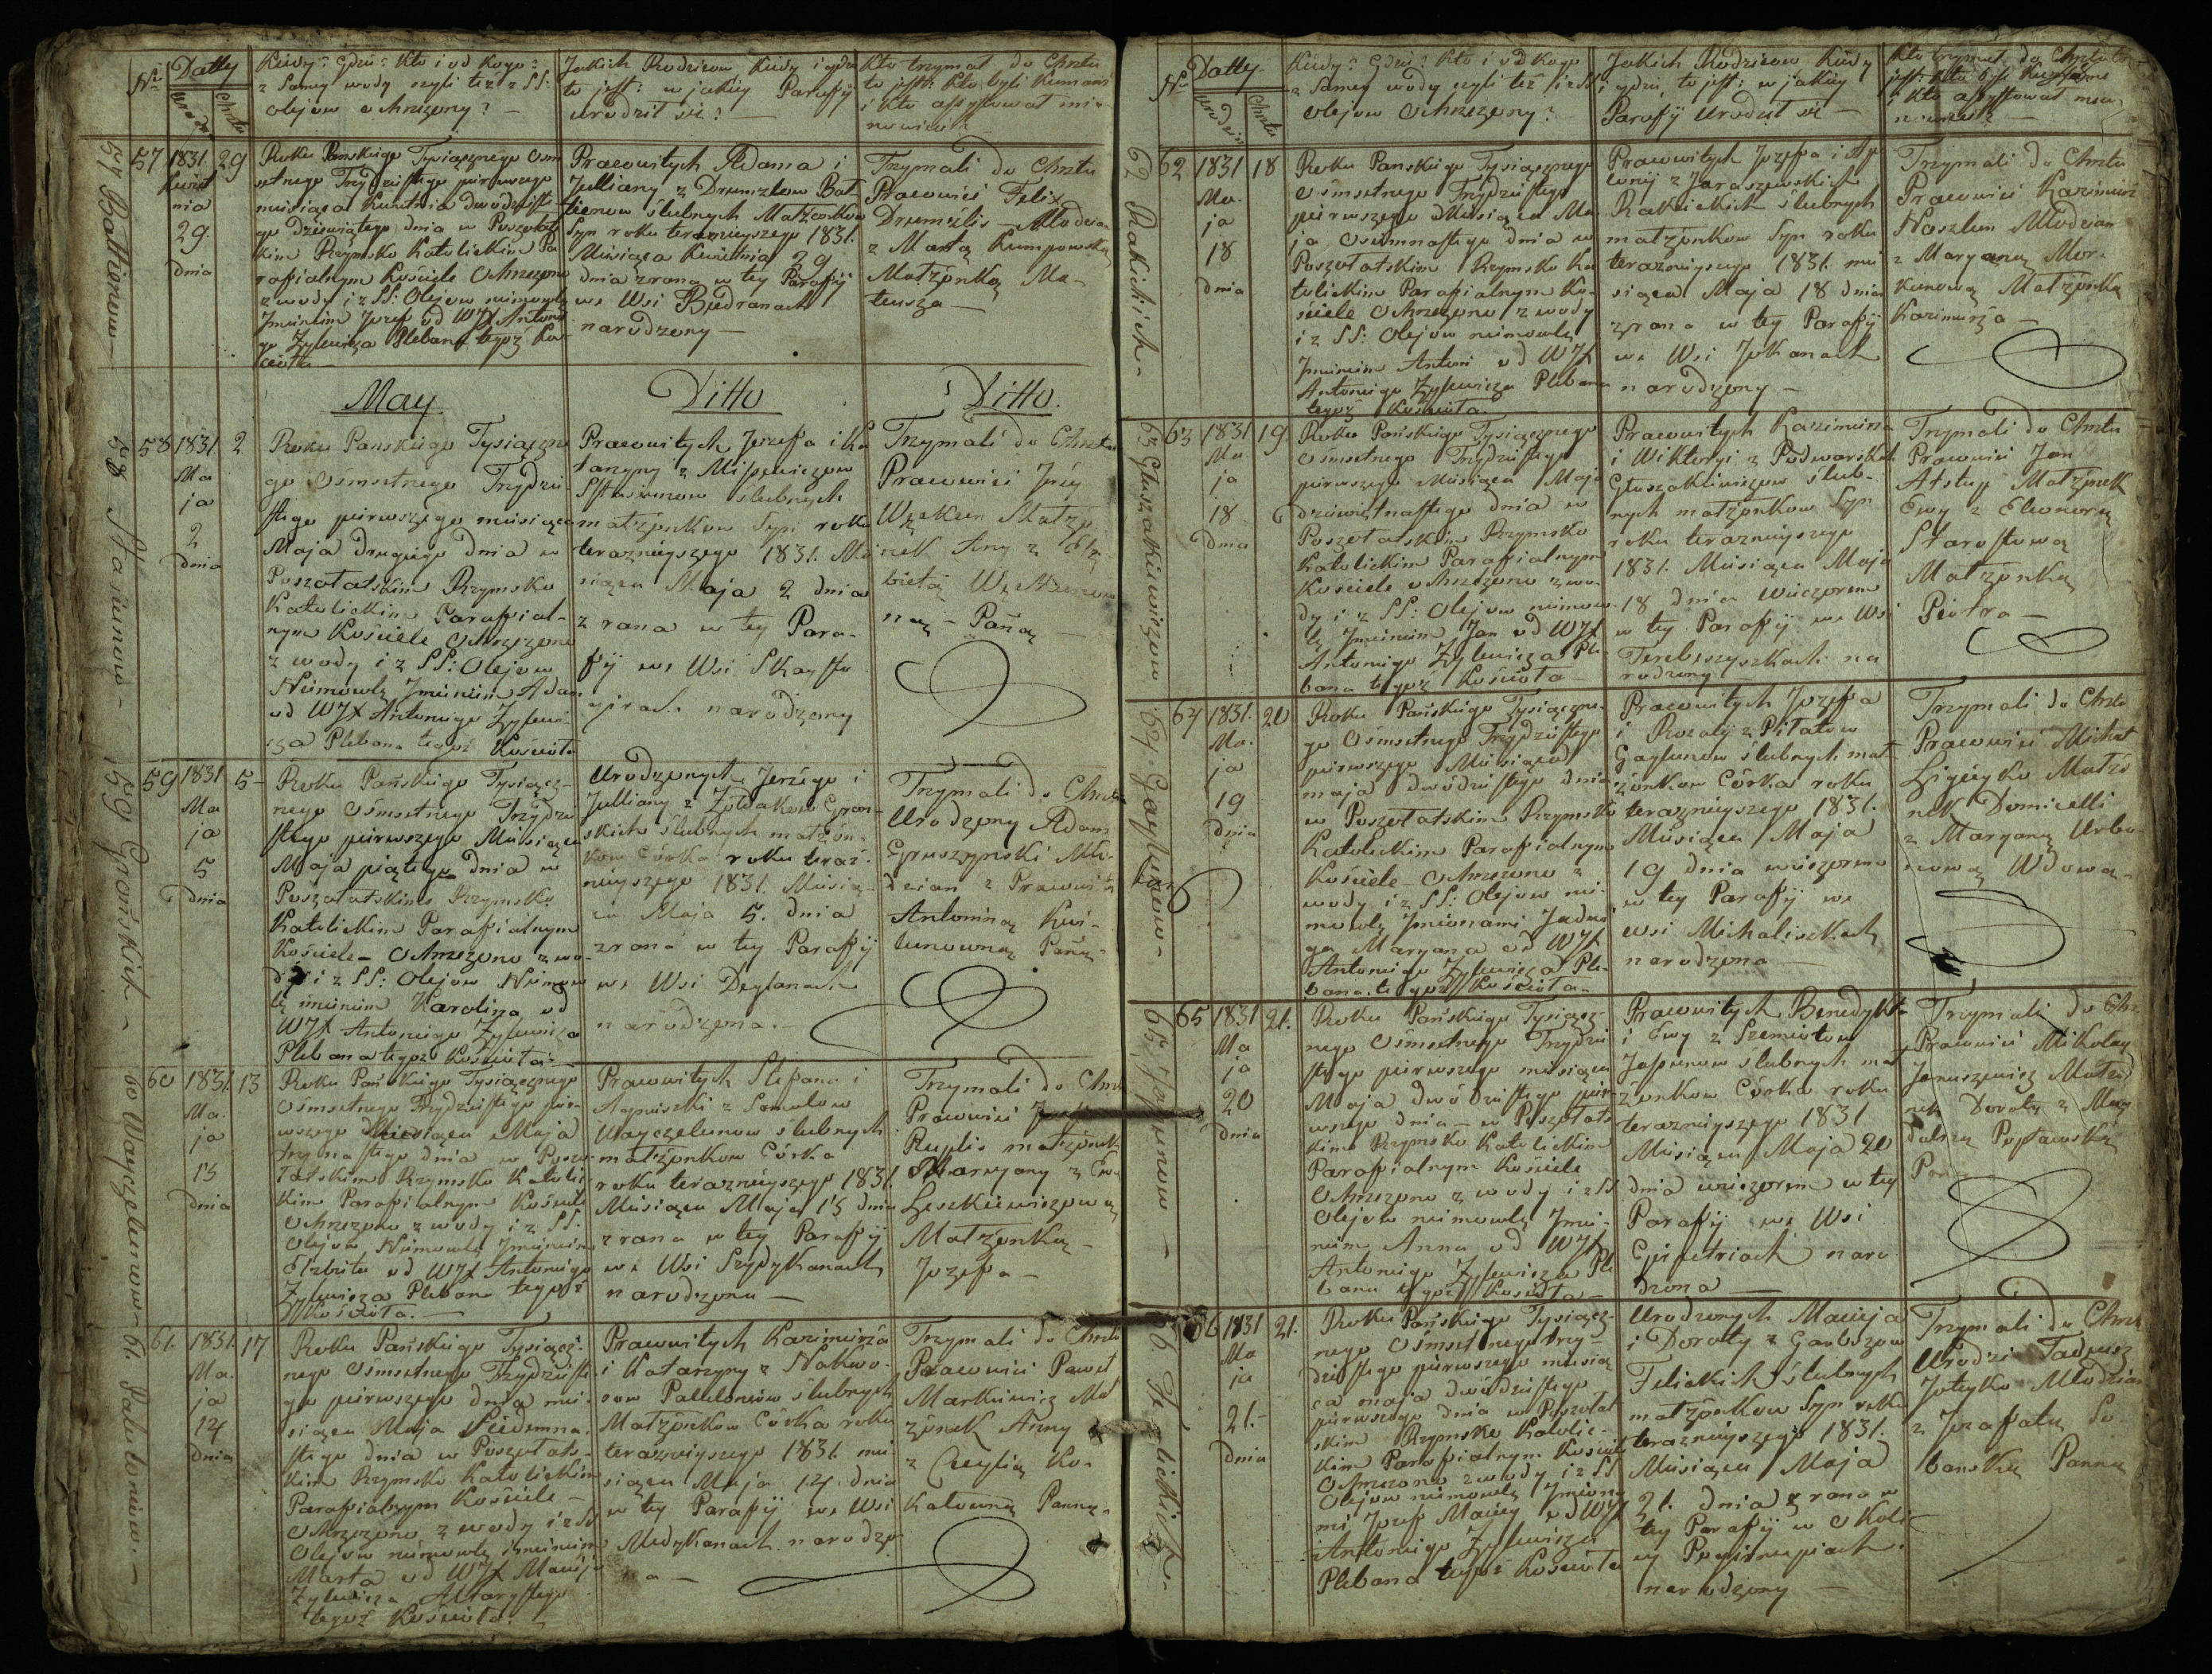 Nr
Datty
urodz:
Chrztu
Kiedy? Gdzie? Kto i od Kogo?
z Samey wody czyli też z SS:
olejow ochrzczony?
Jakich Rodzicow Kiedy i gdzie
to jest: w jakiey Parafij
urodził się?
Kto trzymał do Chrztu
to jest: kto byli Kumami
i kto assystował mia-
nowicie?
57 Baltienow
57
1831.
Kwiet
nia
29.
dnia
29
Roku Panskiego Tysiącznego osm
setnego Trzydziestego pierwszego
miesiąca Kwietnia dwódziest-
go dziewiątego dnia w Poszołats
kim Rzymsko Katolickim Pa
rafialnym Kościele Ochrzczono
z wody i z SS: Olejow niemowlę
Jmieniem Jozef od WJX Antonie
go Zylewicza Plebana tegoż Koś
cioła
Prawowitych Adama i
Julliany z Drumzlow Bal
tienow ślubnych Małżonkow
Syn roku terazniejszego 1831.
Miesiąca Kwietnia 29
dnia zrana w tey Parafij
we Wsi Biedranach
narodzony
Trzymali do Chrztu
Prawowici Felix
Drumzlis Młodzian
z Martą Kumpowską
Małżonką Ma-
teusza
May
Ditto
Ditto.
58 Stasiunow
58
1831
Ma
ja
2
dnia
2
Roku Panskiego Tysiączne
go Ośmsetnego Trzydzie-
stego pierwszego miesiąca
Maja drugiego dnia w
Poszołatskim Rzymsko
Katolickim Parafial-
nym Kościele Ochrzczono
z wody i z SS: Olejow
Niemowlę Jmieniem Adam
od WJX Antoniego Zylewi-
cza Plebana tegoż Kościoła
Prawowitych Jozefa i Ka
tarzyny z Misiewiczow
Stasiunow ślubnych
małżonkow Syn roku
terazniejszego 1831. Mie
siąca Maja 2 dnia
z rana w tey Para-
fij we Wsi Skaysto
girach narodzony
Trzymali do Chrztu
Prawowici Jerzy
Małżo
nek Any z Elż
bietą
ną - Paną
59 Grońskich
59
1831
Ma
ja
5
dnia
5
Roku Pańskiego Tysiącz-
nego Ośmsetnego Trzydzie
stego pierwszego Miesiąca
Maja piątego dnia w
Poszołatskim Rzymsko
Katolickim Parafialnym
Kościele Ochrzczono z wo-
dy i z SS: Olejow Niemow
lę imieniem Karolina od
WJX Antoniego Zylewicza
Plebana tegoż Kościoła
Urodzonych Jerzego i
Julliany z Zołdakow Gron-
skich ślubnych małżon-
kow Córka roku teraz-
niejszego 1831. Miesią-
ca Maja 5. dnia
zrana w tey Parafij
we Wsi Deglanach
narodzona.
Trzymali do Chrztu
Urodzony Adam
Gruszynski Mło-
dzian z Prawowitą
Antoniną Kwi-
lunowną Paną-
60 Wayczelunow
60
1831.
Ma.
ja
13
dnia
13
Roku Pańskiego Tysiącznego
Ośmsetnego Trzydziestego pier-
wszego Miesiąca Maja
trzynastego dnia w Poszo-
łatskim Rzymsko Katolic
kim Parafialnym Kościele
Ochrzczono z wody i z SS.
Olejow Niemowlę Jmieniem
Elzbieta od WJX Antoniego
Zylewicza Plebana tegoż
Kościoła.
Prawowitych Stefana i
Agnieszki z Samulow
Wayczelunow ślubnych
małżonkow Córka
roku terazniejszego 1831.
Miesiąca Maja 13 dnia
zrana w tey Parafij
we Wsi Szydykanach
narodzona
Trzymali do Chrztu
Prawowici Jozef
Ruplis małżonek
Maryany z Ewą
Leszkiewiczową
Małżonką
Jozefa
61. Paluloniow
61.
1831.
Ma.
ja
14
dnia
17
Roku Pańskiego Tysiącz-
nego Ośmsetnego Trzydzieste
go pierwszego dnia mie-
siąca Maja Siedemna-
stego dnia w Poszołats-
kim Rzymsko Katolickim
Parafialnym Kościele
Ochrzczono z wody i z SS
Olejow niemowlę imieniem
Marta od WJX Macieja
Zylewicza Altarystego
tegoż Kościoła.
Prawowitych Kazimierza
i Katarzyny z Nakwo-
sow Paluloniow ślubnych
Małżonkow Córka roku
terazniejszego 1831. mie
siąca Maja 14. dnia
w tey Parafij we Wsi
Medzykanach narodzo
na
Trzymali do Chrztu
Prawowici Paweł
Markiewicz Mał
żonek Anny
z Cecylią Ko-
kałowną Panną.
Nr
Datty
urodze
Chrztu
Kiedy? Gdzie? Kto i od Kogo
z Samey wody czyli też i z SS
olejow Ochrzczony?
Jakich Rodzicow Kiedy
i gdzie, to jest: w jakiey
Parafij Urodził się
Kto trzymał do Chrztu to
jest: kto byli Kumami
i kto assystował mia-
nowicie?
62 Rakickich
62
1831
Ma.
ja
18
dnia
18
Roku Panskiego Tysiącznego
Ośmsetnego Trzydziestego
pierwszego Miesiąca Ma
ja Osiemnastego dnia w
Poszołatskim Rzymsko Ka
tolickim Parafialnym Ko-
ściele Ochrzczono z wody
i z SS: Olejow niemowlę
Jmieniem Antoni od WJX
Antoniego Zylewicza Plebana
tegoż Kościoła.
Prawowitych Jozefa i Ap
olonij z Jaraszewskich
Rakickich ślubnych
małżonkow Syn roku
terazniejszego 1831. mie
siąca Maja 18 dnia
zrana w tey Parafij
we Wsi Jokanach
narodzony
Trzymali do Chrztu
Prawowici Kazimierz
Naszlun Młodzian
z Maryaną Mor-
kunową Małżonką
Kazimierza
63 Głuszakiewiczow
63
1831
Ma
ja
18
Dnia
19
Roku Pańskiego Tysiącznego
Ośmsetnego Trzydziestego
pierwszego Miesiąca Maja
dziewiętnastego dnia w
Poszołatskim Rzymsko
Katolickim Parafialnym
Kościele ochrzczono z wo-
dy i z SS: Olejow niemow-
lę Jmieniem Jan od WJX
Antoniego Zylewicza Ple-
bana tegoż Kościoła
Prawowitych Kazimierza
i Wiktoryi z Podworskich
Głuszakiewiczow ślub-
nych małżonkow Syn
roku terazniejszego
1831. Miesiąca Maja
18 dnia wieczorem
w tey Parafij we Wsi
Terebeszyszkach na
rodzony
Trzymali do Chrztu
Prawowici Jan
Małżonek
Ewy z Eleonorą
Starostową
Małżonką
Piotra
64. Gaylunow
64
1831.
Ma.
ja
19
dnia
20
Roku Pańskiego Tysiączne-
go Ośmsetnego Trzydziestego
pierwszego Miesiąca
maja dwódziestego dnia
w Poszołatskim Rzymsko
Katolickim Parafialnym
Kościele Ochrzczono z
wody i z SS: Olejow nie-
mowlę Jmionami Jadwi
ga Maryana od WJX
Antoniego Zylewicza Ple-
bana tegoż Kościoła
Prawowitych Jozefa
i Rozalij z Piłatow
Gaylunow ślubnych mał
żonkow Córka roku
terazniejszego 1831.
Miesiąca Maja
19 dnia wieczorem
w tey Parafij we
wsi Michaliszkach
narodzona
Trzymali do Chrztu
Prawowici Michał
Ligieyko Małżo
nek Domicelli
z Maryaną Urbo-
nową Wdową-
65 Jasiunow
65
1831
Ma
ja
20
dnia
21.
Roku Pańskiego Tysiącz-
nego Ośmsetnego Trzydzie
stego pierwszego miesiąca
Maja dwódziestego pier-
wszego dnia w Poszołats
kim Rzymsko Katolickim
Parafialnym Kościele
Ochrzczono z wody i z SS
Olejow niemowlę Jmie-
niem Anna od WJX
Antoniego Zylewicza Ple
bana tegoż Kościoła
Prawowitych Benedykta
i Ewy z Szemiotow
Jasiunow ślubnych mał
żonkow Córka roku
terazniejszego 1831
Miesiąca Maja 20
dnia wieczorem w tey
Parafij we Wsi
naro
dzona
Trzymali do Chrz
Prawowici Mikołay
Januszewicz Małżo
nek Doroty z Mag
daleną Popławską
66. Felickich
66
1831
Ma
ja
21.
dnia
21.
Roku Pańskiego Tysiącz-
nego Ośmsetnego trzy-
dziestego pierwszego miesią
ca maja dwódziestego
pierwszego dnia w Poszołat
skim Rzymsko Katolic-
kim Parafialnym Kościele
Ochrzczono z wody i z SS
Olejow niemowlę Jmiona
mi Jozef Maciey od WJX
Antoniego Zylewicza
Plebana tegoż Kościoła
Urodzonych Macieja
i Doroty z
Felickich ślubnych
małżonkow Syn roku
terazniejszego 1831.
Miesiąca Maja
21. dnia z rana w
tey Parafij w Okoli-
cy
narodzony
Trzymali do Chrztu
Urodzi Tadeusz
Młodzian
z Jozafatą So
bańską Panną